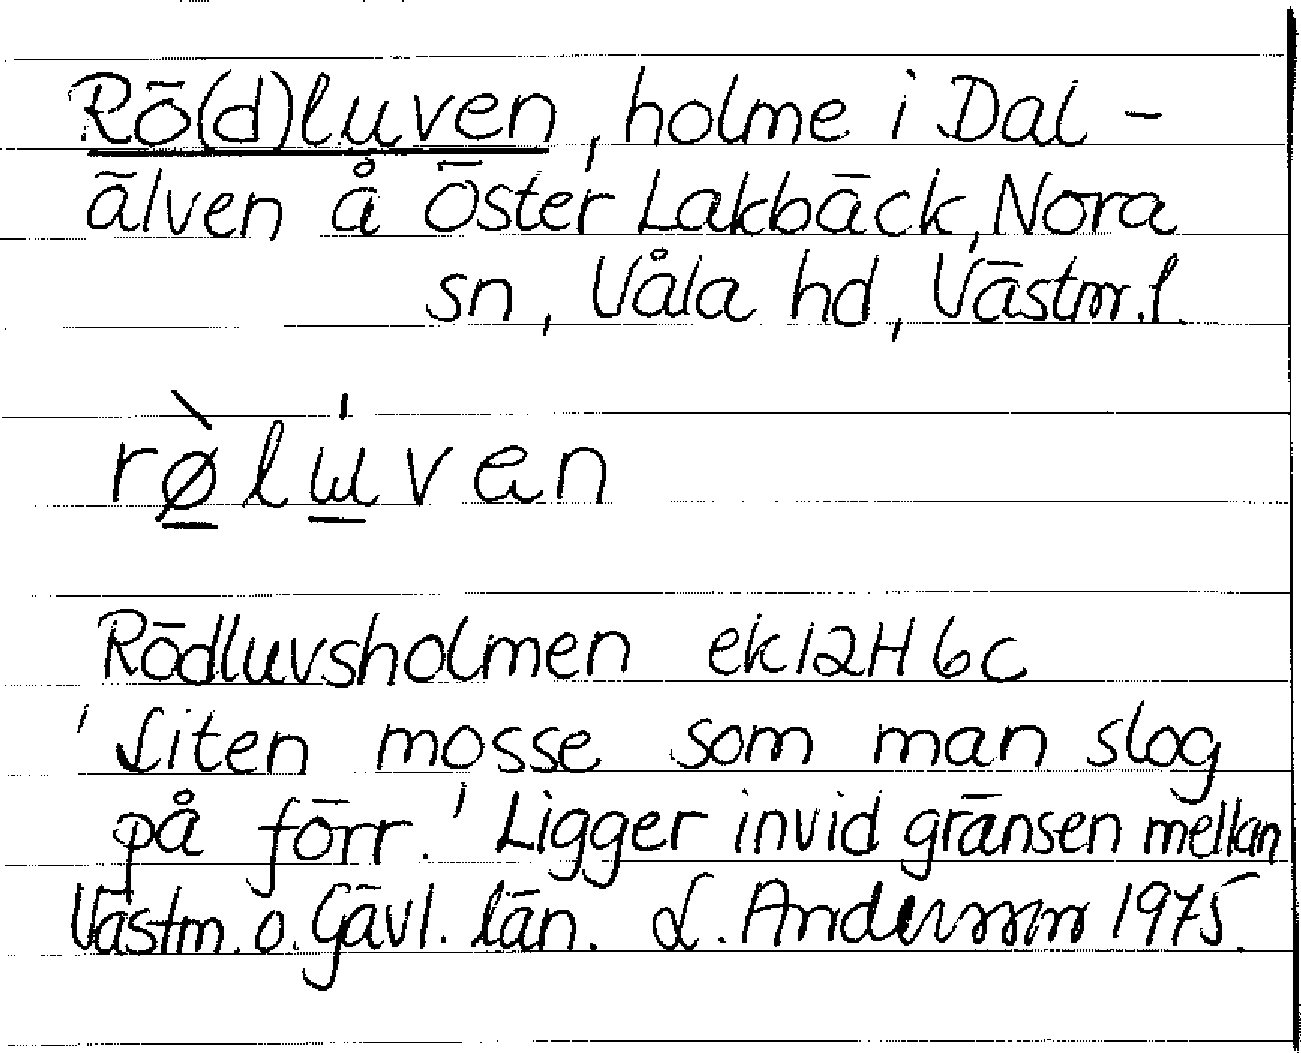 Rö(d)luven, holme i Dal-
älven å Öster Lakbäck, Nora
sn, Våla hd, Västm.l.
rø̀lɯ́van
Rödluvsholmen ek 12H 6c
'Liten mosse som man slog
på förr.' Ligger invid gränsen mellan
Västm. o. Gävl. län. L. Andersson 1975.